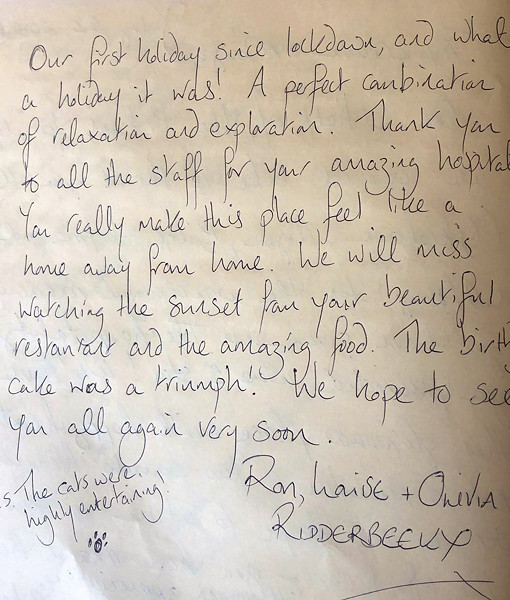 Our first holiday since lockdown, and what
a holiday it was! A perfect combination
of relaxation and exploration. Thank you
to all the staff for your amazing hospital
You really make this place feel like a
home away from home. We will miss
watching the sunset from your beautiful
restaurant and the amazing food. The birth
cake was a triumph! We hope to see
you all again very soon.
Ron, Louise + Olivia
RIDDERBEEKX
s. The cats were
highly entertaining!